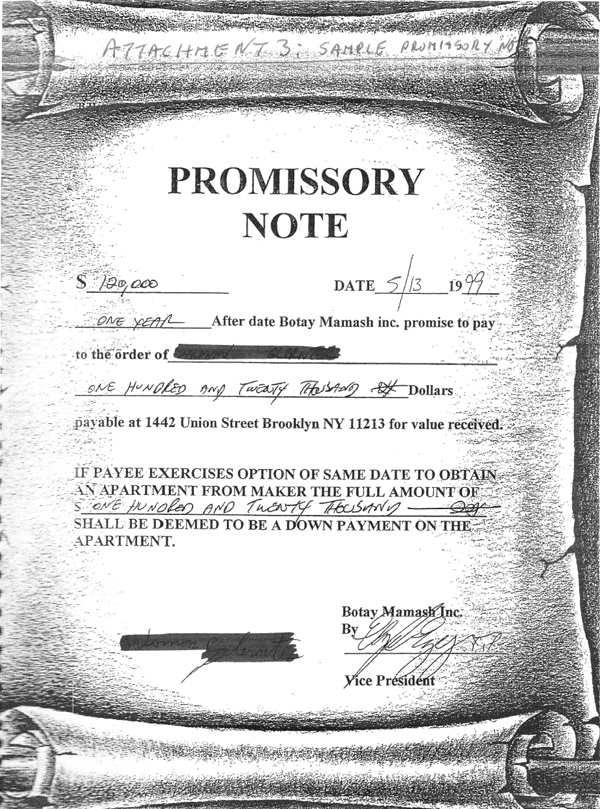 ATTACHMENT 3: SAMPLE PROMISSORY NOTE
PROMISSORY
NOTE
$ 120,000 DATE 5/13 1999
ONE YEAR After date Botay Mamash inc. promise to pay
to the order of
ONE HUNDRED AND TWENTY THOUSAND Dollars
payable at 1442 Union Street Brooklyn NY 11213 for value received.
IF PAYEE EXERCISES OPTION OF SAME DATE TO OBTAIN
AN APARTMENT FROM MAKER THE FULL AMOUNT OF
$ ONE HUNDRED AND TWENTY THOUSAND
SHALL BE DEEMED TO BE A DOWN PAYMENT ON THE
APARTMENT.
Botay Mamash Inc.
By
Vice President